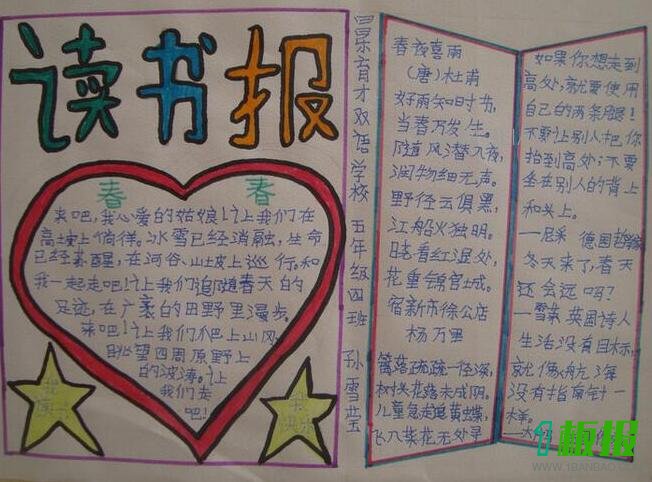 读书报
春 春
来吧,我心爱的姑娘!让我们在
高坡上徜徉。冰雪已经消融,生命
已经苏醒,在河谷、山坡上巡行,和
我一起走吧!让我们追随春天的
足迹,在广袤的田野里漫步。
来吧!让我们爬上山冈,
眺望四周原野上
的波涛。让
我们走
吧!
我
读书
我
快乐
育才双语学校 五年级四班 孙雪莹
春夜喜雨
(唐)杜甫
好雨知时节,
当春万发生。
随风潜入夜,
润物细无声。
野径云俱黑,
江船火独明。
晓看红湿处,
花重锦官城。
宿新市徐公店
杨万里
篱落疏疏一径深,
树头花落未成阴。
儿童急走追黄蝶,
飞入菜花无处寻
如果你想走到
高处,就要使用
自己的两条腿!
不要让别人把你
抬到高处;不要
坐在别人的背上
和头上。
—尼采 德国哲学家
冬天来了,春天
还会远吗?
—雪莱 英国诗人
生活没有目标,
就像航海
没有指南针一
样。
1板报
WWW.1BANBAO.COM